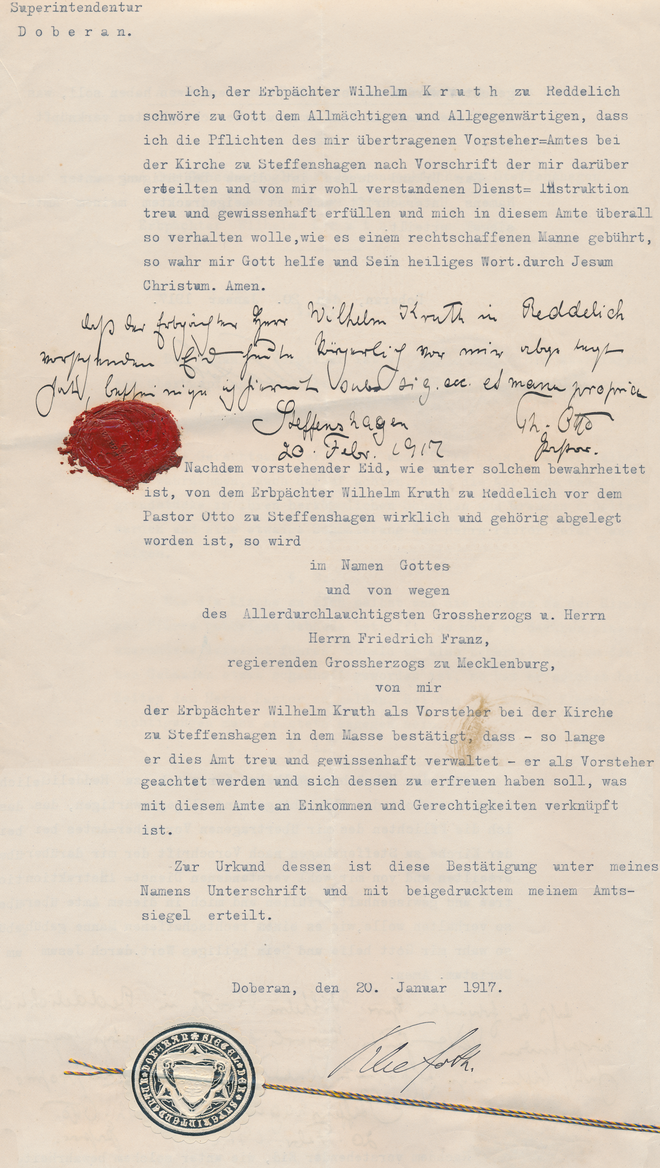 Superintendentur
Doberan.
Ich, der Erbpächter Wilhelm Kruth zu Reddelich
schwöre zu Gott dem Allmächtigen und Allgegenwärtigen, dass
ich die Pflichten des mir übertragenen Vorsteher=Amtes bei
der Kirche zu Steffenshagen nach Vorschrift der mir darüber
erteilten und von mir wohl verstandenen Dienst= Instruktion
treu und gewissenhaft erfüllen und mich in diesem Amte überall
so verhalten wolle,wie es einem rechtschaffenen Manne gebührt,
so wahr mir Gott helfe und Sein heiliges Wort.durch Jesum
Christum. Amen.
daß der Erbpächter Herr Wilhelm Kruth in Reddelich
vorstehenden Eid heute körperlich vor mir abgelegt
hat, bescheinige ich hiermit sub sig. ecc. et manu propria
Steffenshagen Th. Otto
20. Febr. 1917 Pastor.
Nachdem vorstehender Eid, wie unter solchem bewahrheitet
ist, von dem Erbpächter Wilhelm Kruth zu Reddelich vor dem
Pastor Otto zu Steffenshagen wirklich und gehörig abgelegt
worden ist, so wird
im Namen Gottes
und von wegen
des Allerdurchlauchtigsten Grossherzogs u. Herrn
Herrn Friedrich Franz,
regierenden Grossherzogs zu Mecklenburg,
von mir
der Erbpächter Wilhelm Kruth als Vorsteher bei der Kirche
zu Steffenshagen in dem Masse bestätigt, dass - so lange
er dies Amt treu und gewissenhaft verwaltet - er als Vorsteher
geachtet werden und sich dessen zu erfreuen haben soll, was
mit diesem Amte an Einkommen und Gerechtigkeiten verknüpft
ist.
Zur Urkund dessen ist diese Bestätigung unter meines
Namens Unterschrift und mit beigedrucktem meinem Amts-
siegel erteilt.
Doberan, den 20. Januar 1917.
SIEGEL DER SUPERINTENDENTUR DOBERAN